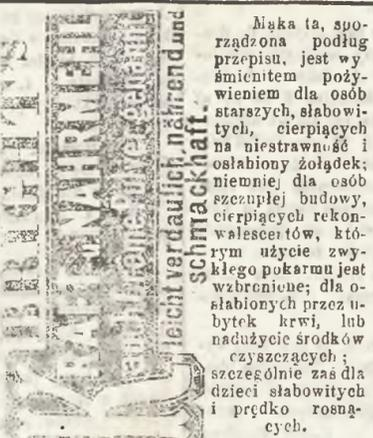 KNORRICHT'S
KRAFT-NÄHRMEHL
leicht verdaulich, nährend und
schmackhaft.
Mąka ta, spo-
rządzona podług
przepisu, jest wy
śmienitem poży-
wieniem dla osób
starszych, słabowi-
tych, cierpiących
na niestrawność i
osłabiony żołądek;
niemniej dla osób
szczupłej budowy,
cierpiących rekon-
walescentów, któ-
rym użycie zwy-
kłego pokarmu jest
wzbronione; dla o-
słabionych przez u-
bytek krwi, lub
nadużycie środków
czyszczących;
szczególnie zaś dla
dzieci słabowitych
i prędko rosną-
cych.